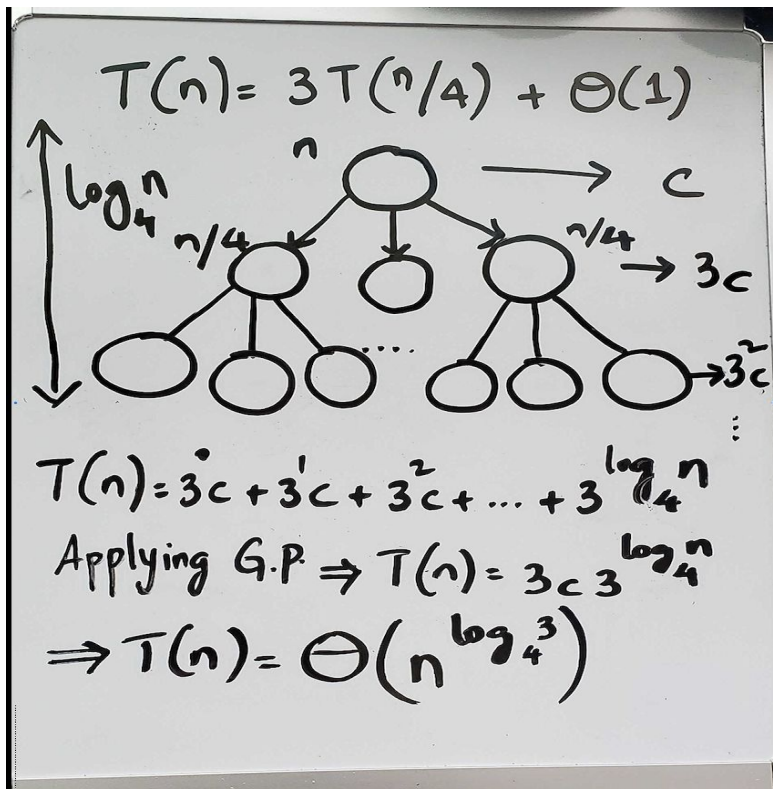 T(n) = 3T(n/4) + Θ(1)
n → c
log₄n
n/4 n/4 → 3c
.... → 3²c
⋮
T(n) = 3⁰c + 3¹c + 3²c + ... + 3^log₄n
Applying G.P. ⇒ T(n) = 3c3^log₄n
⇒ T(n) = Θ(n^log₄3)